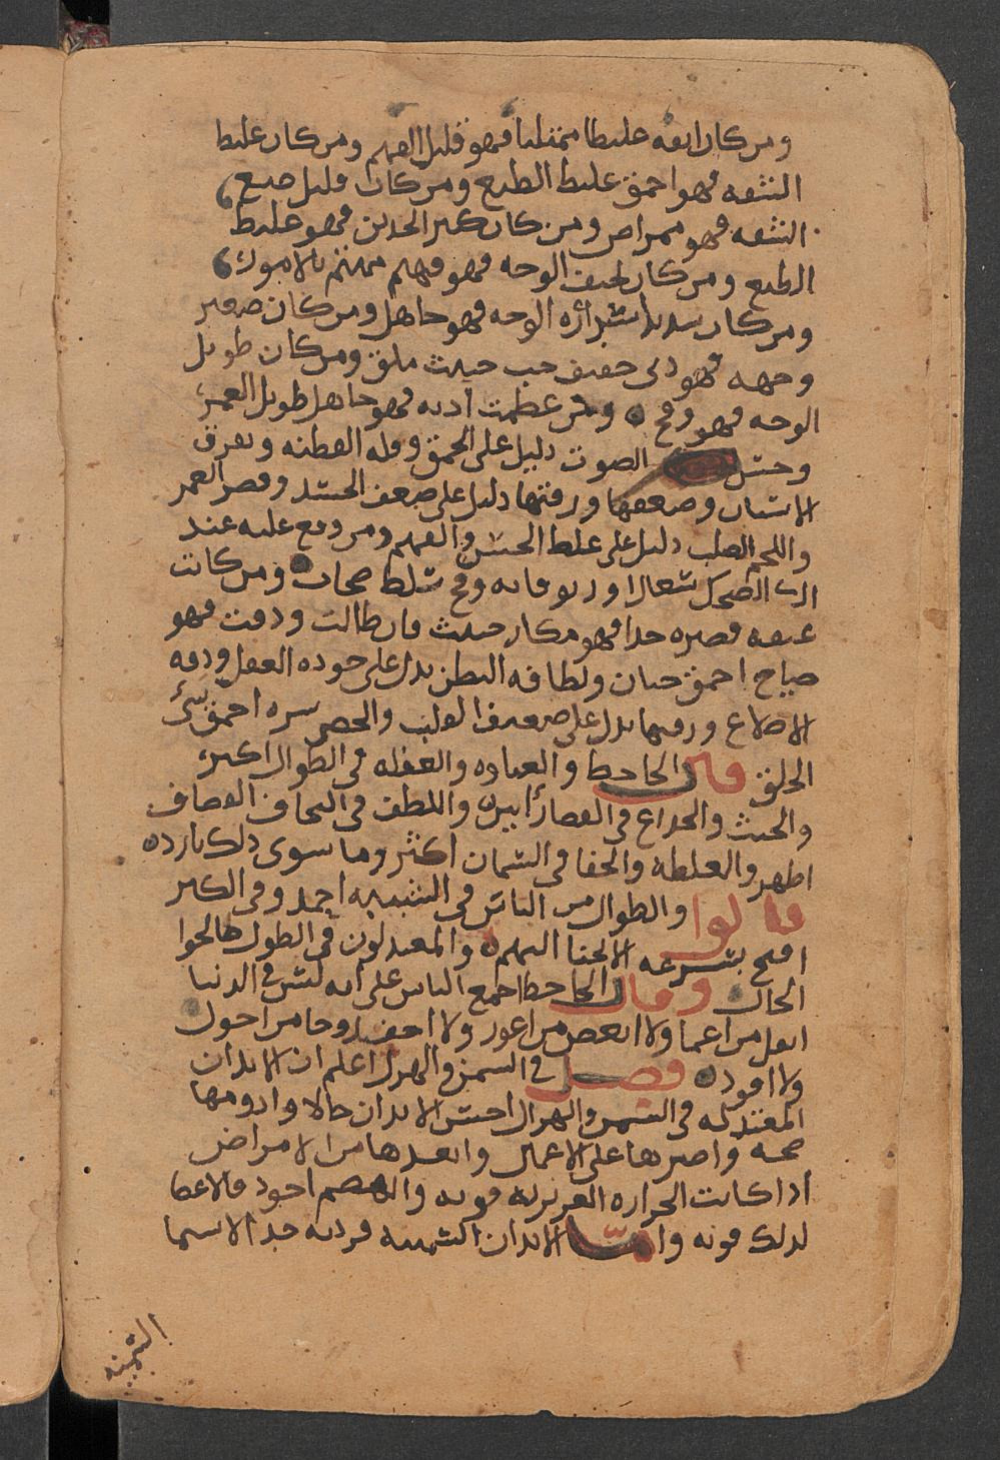 ومن كان انفه غليظا ممتليا فهو قليل الفهم ومن كان غليظ
الشفه فهو احمق غليظ الطبع ومن كان قليل صبغ
الشفه فهو ممراض ومن كان كثير لحم الخدين فهو غليظ
الطبع ومن كان نحيف الوجه فهو فهم مهتم بالامور
ومن كان شديد استداره الوجه فهو جاهل ومن كان صغير
وجهه فهو دنى خبيث ملق ومن كان طويل
الوجه فهو وقح ومن عظمت اذنه فهو جاهل طويل العمر
وحسن الصوت دليل على الحمق وقله الفطنه وتفرق
الاسنان وضعفها ورقتها دليل على ضعف الجسد وقصر العمر
واللحم الصلب دليل على غلظ الحس والفهم ومن وقع عليه عند
الضحك سعال او ربو فانه وقح سلط صخاب ومن كانت
عنقه قصيره جدا فهو مكار خبيث فان طالت ودقت فهو
صياح احمق جبان ولطافه البطن يدل على جوده العقل ودقه
الاضلاع ورقتها يدل على ضعف القلب احمق سئ
الخلق قال الجاحظ والغباوه والغفله فى الطوال اكثر
والخبث والخداع فى القصار واللطف فى النحاف القصاف
اظهر والغلظه والجفا فى السمان اكثر وما سوى ذلك نادره
قالوا والطوال من الناس فى الشبيبه اجمل وفى الكبر
اقبح بسرعه الانحنا اليهم والمعتدلون فى الطول صالحوا
الحال وقال الجاحظ اجمع الناس على انه ليس فى الدنيا
اثقل من اعما ولا ابغض من اعور ولا اخف روحا من احول
ولا اقود فصل فى السمن والهزال اعلم ان الابدان
المعتدله فى السمن والهزال احسن الابدان حالا وادومها
صحه واصبرها على الاعمال وابعدها من الامراض
اذا كانت الحراره الغريزيه قويه والهضم اجود فالاعضا
لذلك قويه واما الابدان السمينه فرديه جدا لا سيما
السمينه